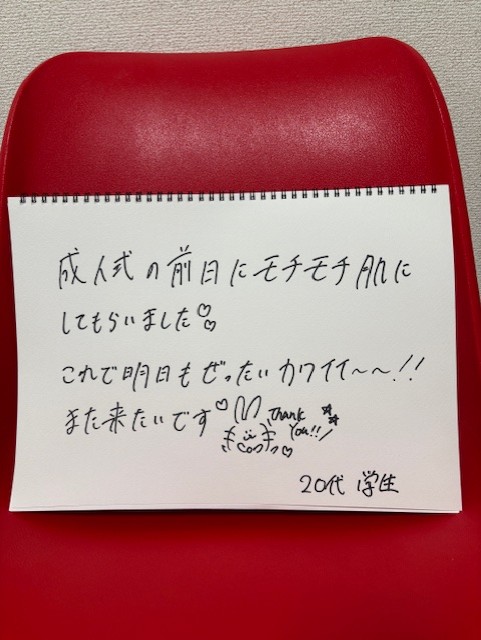 成人式の前日にモチモチ肌に
してもらいました♡♡
これで明日もぜったいカワイイ〜〜!!
また来たいです♡
Thank
You!!
20代 学生